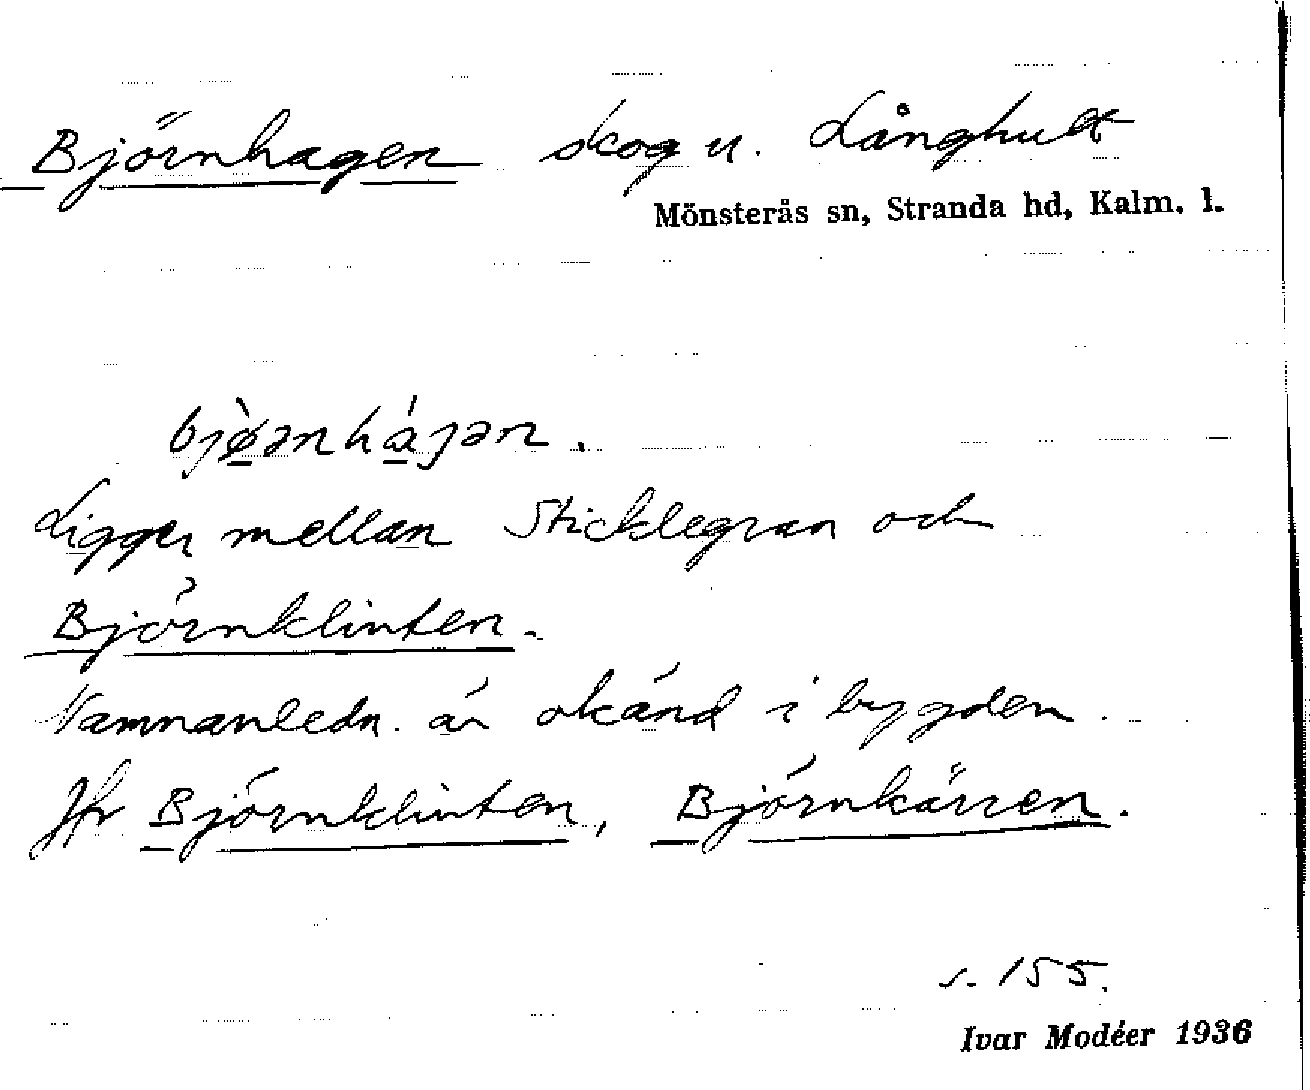 Björnhagen skog u. Långhult
Mönsterås sn, Stranda hd, Kalm. l.
bjø̀ənhájən.
Ligger mellan Sticklegran och
Björnklinten.
Namnanledn. är okänd i bygden.
Jfr Björnklinten, Björnkärren.
s. 155.
Ivar Modéer 1936